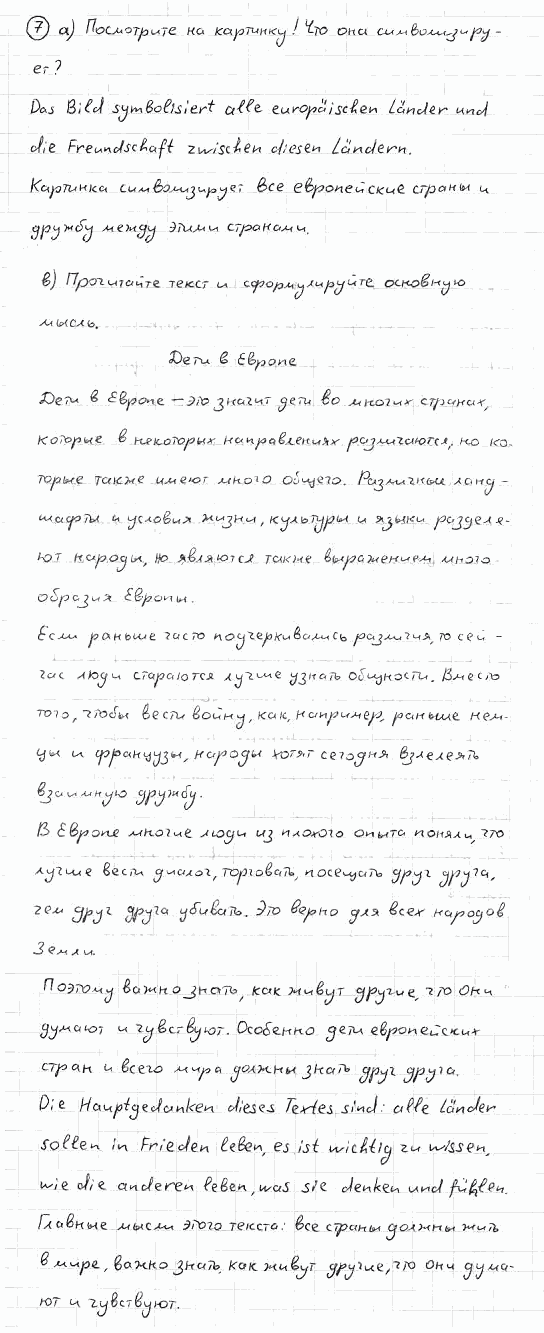 7 а) Посмотрите на картинку! Что она символизиру-
ет?
Das Bild symbolisiert alle europäischen Länder und
die Freundschaft zwischen diesen Ländern.
Картинка символизирует все европейские страны и
дружбу между этими странами.
в) Прочитайте текст и сформулируйте основную
мысль.
Дети в Европе
Дети в Европе – это значит дети во многих странах,
которые в некоторых направлениях различаются, но ко-
торые также имеют много общего. Различные ланд-
шафты и условия жизни, культуры и языки разделя-
ют народы, но являются также выражением много-
образия Европы.
Если раньше часто подчеркивались различия, то сей-
час люди стараются лучше узнать общности. Вместо
того, чтобы вести войну, как, например, раньше нем-
цы и французы, народы хотят сегодня взлелеять
взаимную дружбу.
В Европе многие люди из плохого опыта поняли, что
лучше вести диалог, торговать, посещать друг друга,
чем друг друга убивать. Это верно для всех народов
Земли.
Поэтому важно знать, как живут другие, что они
думают и чувствуют. Особенно дети европейских
стран и всего мира должны знать друг друга.
Die Hauptgedanken dieses Textes sind: alle Länder
sollen in Frieden leben, es ist wichtig zu wissen,
wie die anderen leben, was sie denken und fühlen.
Главные мысли этого текста: все страны должны жить
в мире, важно знать, как живут другие, что они дума-
ют и чувствуют.